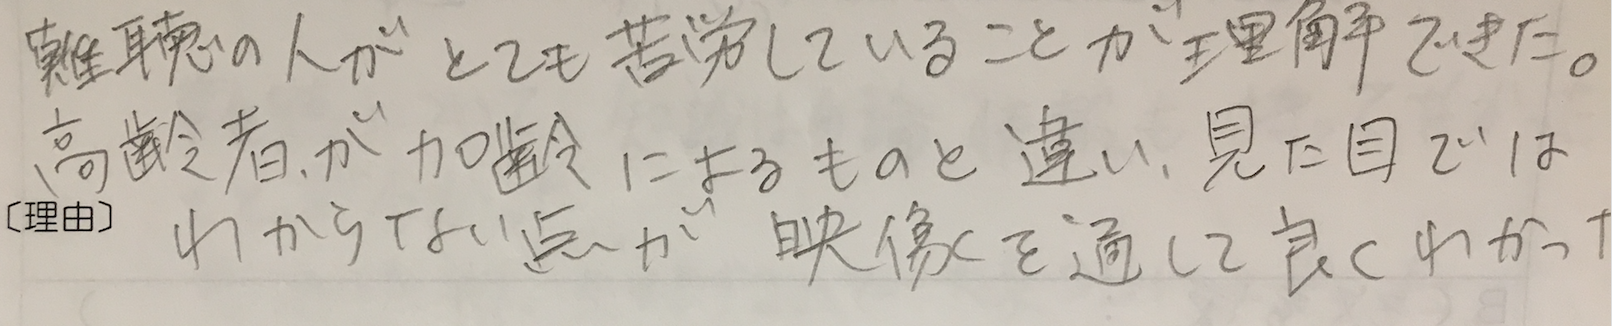 難聴の人がとても苦労していることが理解できた。
高齢者が加齢によるものと違い、見た目では
〔理由〕 わからない点が映像を通して良くわかった